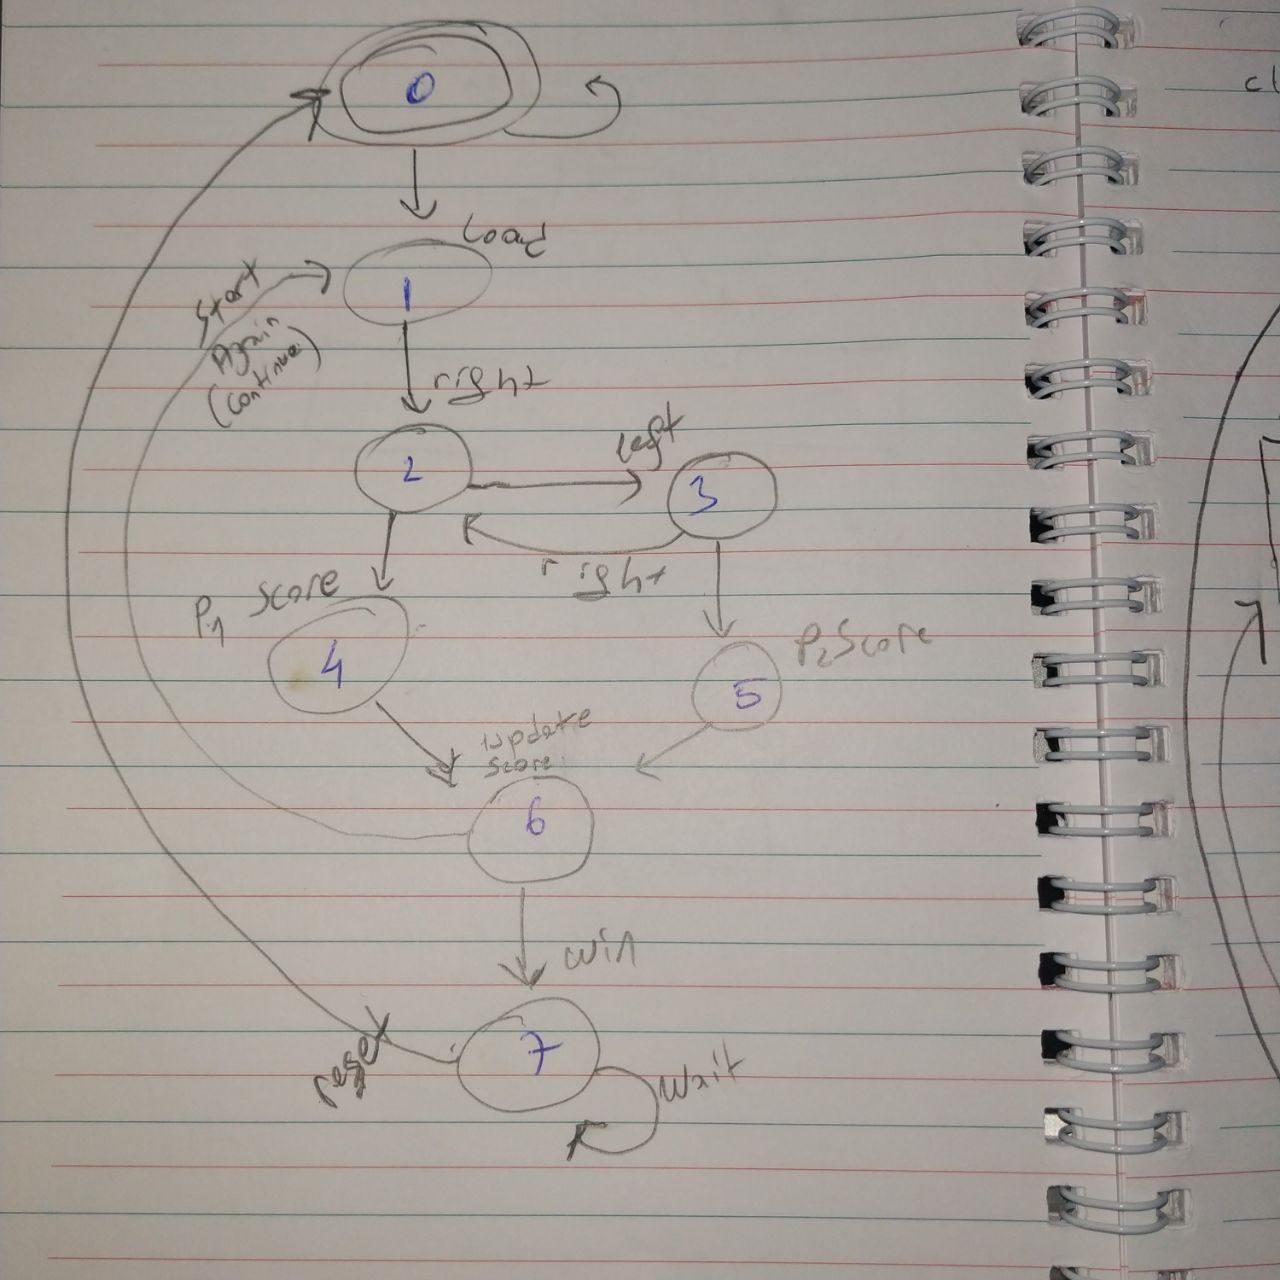 0
Load
1
Start
Again
(continue)
right
2
left
3
right
P1 Score
4
P2 Score
5
update
score
6
win
7
reset
wait